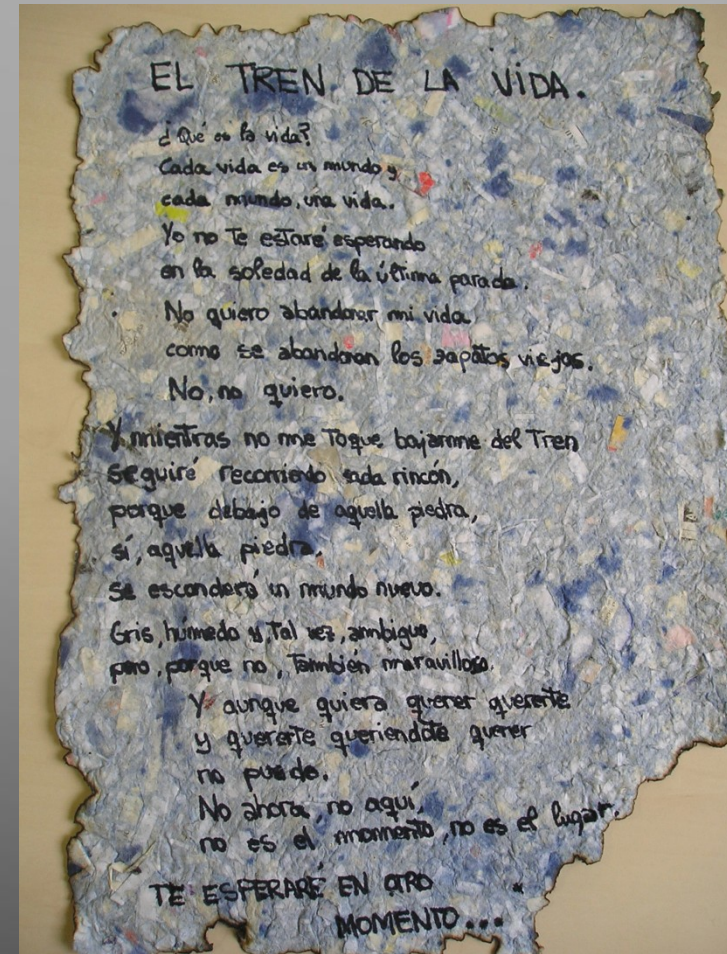 EL TREN DE LA VIDA.
¿Qué es la vida?
Cada vida es un mundo y
cada mundo, una vida.
Yo no te estaré esperando
en la soledad de la última parada.
No quiero abandonar mi vida
como se abandonan los zapatos viejos.
No, no quiero.
Y mientras no me toque bajarme del tren
seguiré recorriendo cada rincón,
porque debajo de aquella piedra,
sí, aquella piedra,
se esconderá un mundo nuevo.
Gris, húmedo y, tal vez, ambiguo,
pero, porque no, también maravilloso.
Y aunque quiera querer quererte
y quererte queriendote querer
no puedo.
No ahora, no aquí,
no es el momento, no es el lugar.
TE ESPERARÉ EN OTRO
MOMENTO...